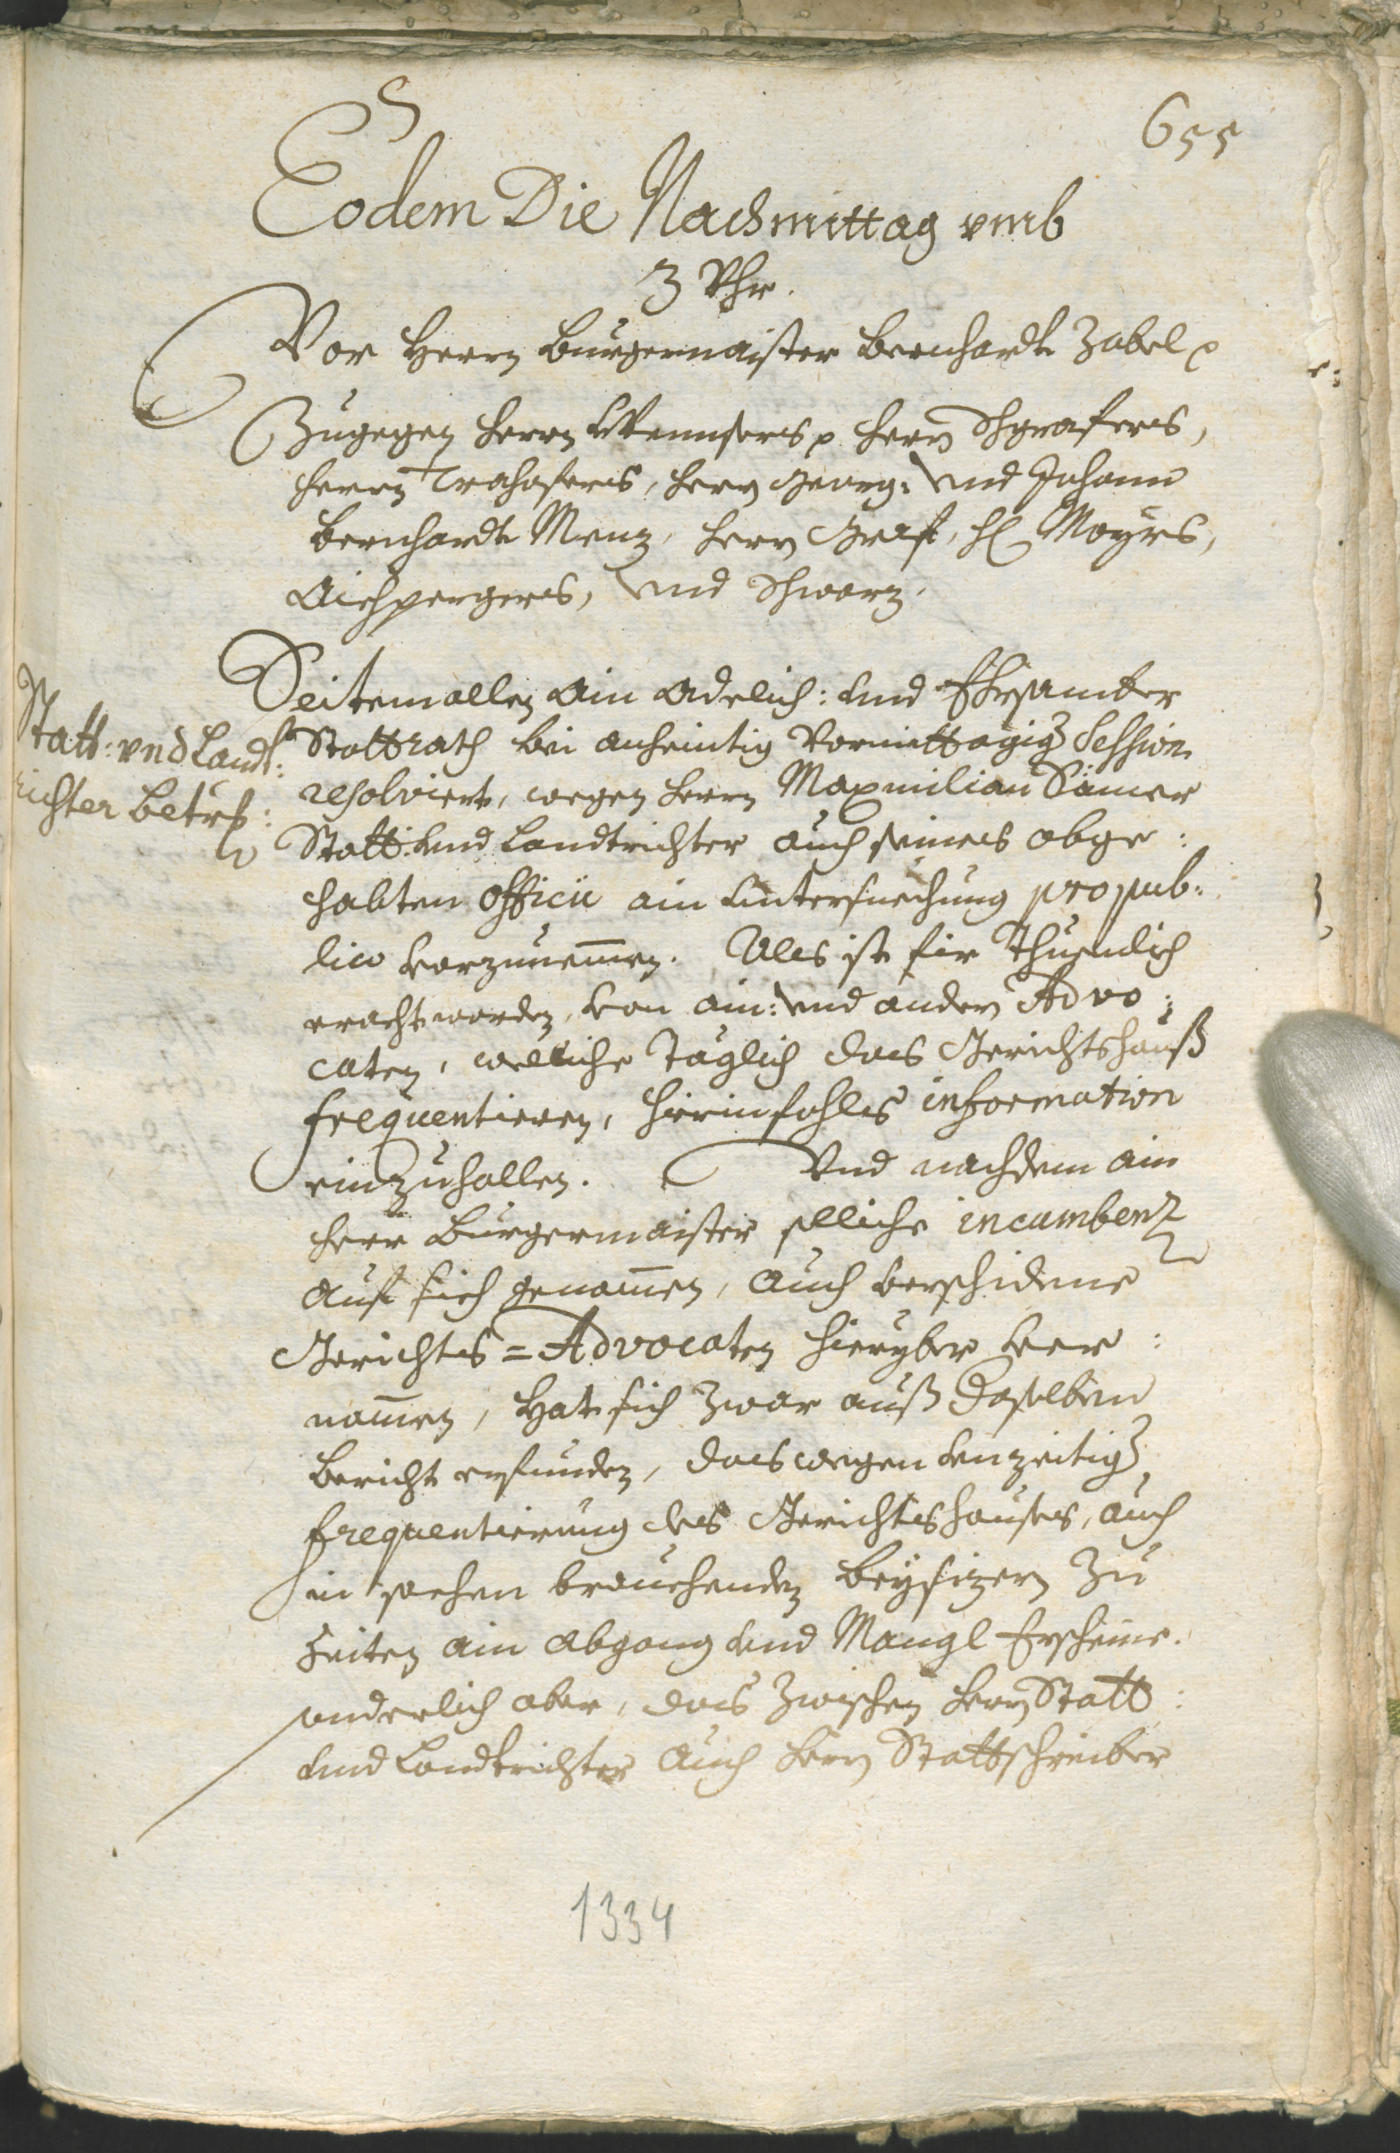 655
Eodem Die Nachmittag vmb
3 Vhr.
Vor Herrn Burgermaister Bernhardt Zabel
Zugegen Herrn Herrn Schgrafers,
Herrn Trahofers, Herrn Georg: Vnd Johann
Bernhardt Menz, Herrn Graf, H: Mayrs,
Aichpergers, Vnd Schwarz.
Seitemallen Ain Adelich: vnd Ehrsamber
Statt: vnd Landt:
Stattrath bei anheintig Vormittagig Session
richter betrf:
resolviert, wegen Herrn Maxmilian
Statt: vnd Landtrichter auch seines obge:
habten Officii ain vntersuechung pro pub:
lico vorzunemmen. Als ist fir thuenlich
eracht worden, von ain: Vnd andern Advo:
caten, welliche täglich das Gerichtshauß
frequentieren, hierinfahls information
einzuhollen. Vnd nachdem ain
Herr Burgermaister solliche incumbenz
auf sich genommen, auch verschidene
Gerichts=Advocaten hieryber ver:
nommen, Hat sich zwar auß daselben
bericht erfunden, das wegen vnzeitig
frequentierung des Gerichtshauses, auch
in sachen brauchenden Beysizern zu
Zeiten ain abgang vnd Mangl Erscheine.
sonderlich aber, das zwischen Herrn Statt:
vnd Landtrichter auch Herrn Stattschreiber
1334